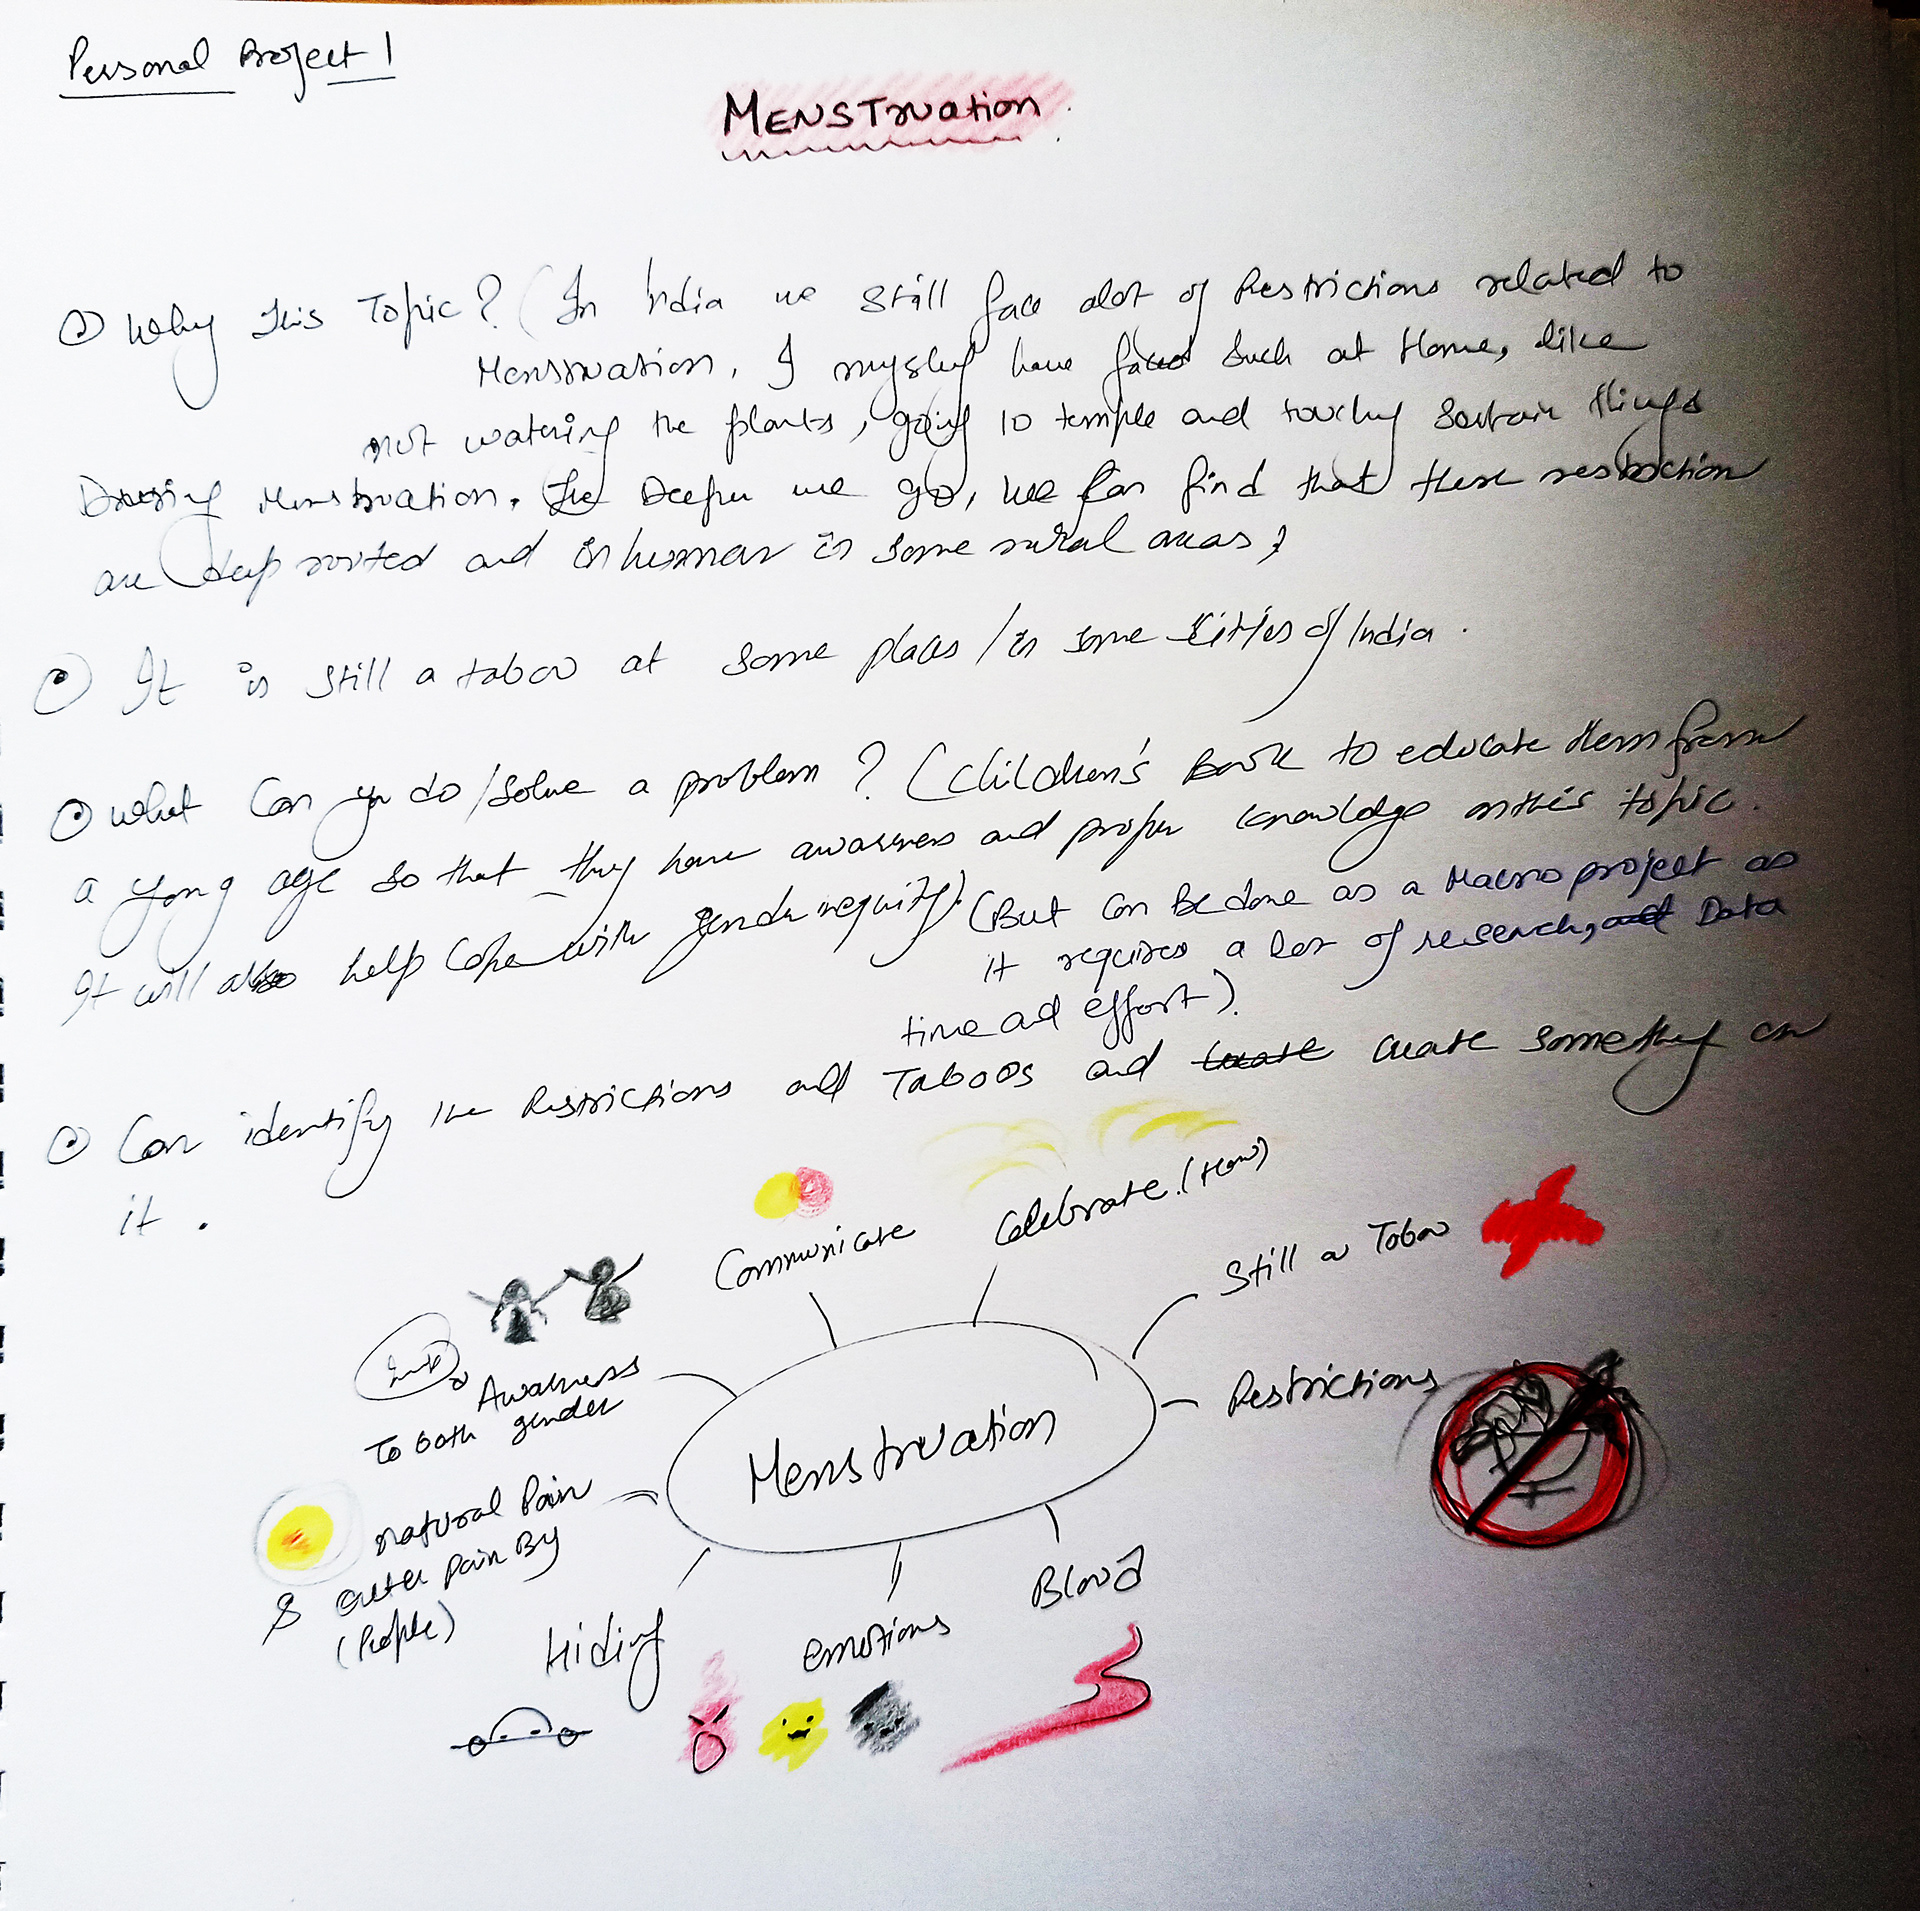 Personal Project 1
MENSTRUation
Why This Topic? (In India we still face alot of Restrictions related to
Menstruation. I myself have faced such at Home, like
not watering the plants, going to temple and touching certain things
During Menstruation. The Deeper we go, we can find that these restriction
are deep rooted and inhuman in some rural areas)
It is still a taboo at some places / in some cities of India.
What Can you do / Solve a problem? (Children's Book to educate them from
a young age so that they have awareness and proper knowledge on this topic.
It will also help Cope with gender inequity) (But Can Be done as a Macro project as
it requires a lot of research, and Data
time and effort).
Can identify the Restrictions and Taboos and create create something on
it.
Communicate
Celebrate. (How)
Still a Taboo
Awareness
To both gender
Restrictions
Menstruation
natural Pain
& outer Pain By
(People)
Hiding
emotions
Blood